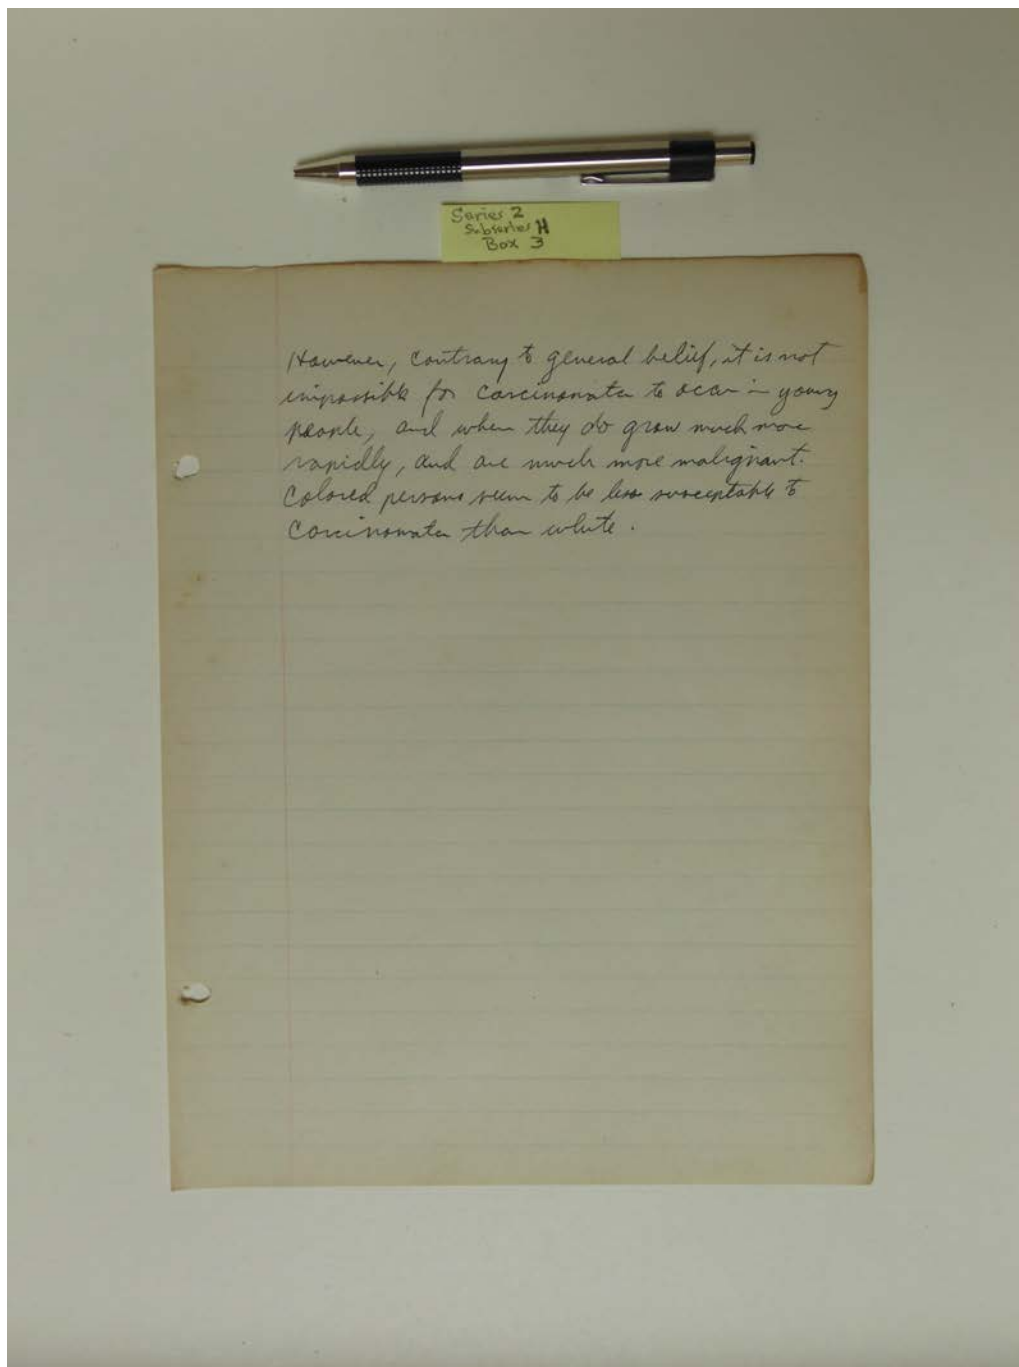 Series 2
Subseries H
Box 3
However, contrary to general belief, it is not
impossible for carcinomata to occur in young
people, and when they do grow much more
rapidly, and are much more malignant.
Colored persons seem to be less susceptable to
Carcinomata than white.